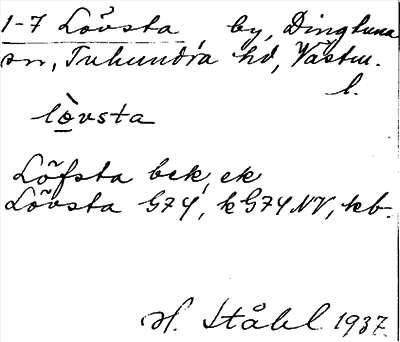 1-7 Lövsta, by, Dingtuna
sn, Tuhundra hd, Västm.
l.
lò̱vsta
Löfsta bek, ek
Lövsta G74, kG74NV, kb.
H. Ståhl 1937.